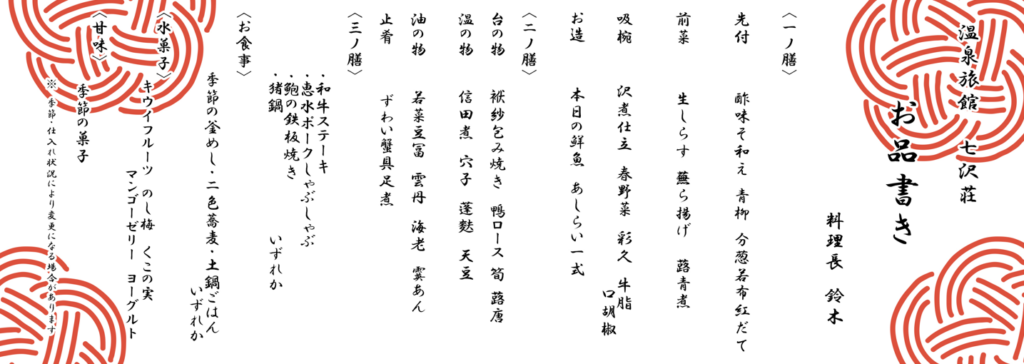 温泉旅館 七沢荘
お品書き
料理長 鈴木
〈一ノ膳〉
先付 酢味そ和え 青柳 分葱若布紅だて
前菜 生しらす 蕪ら揚げ 蕗青煮
吸椀 沢煮仕立 春野菜 彩久 牛脂
口胡椒
お造 本日の鮮魚 あしらい一式
〈二ノ膳〉
台の物 袱紗包み焼き 鴨ロース 筍 蕗唐
温の物 信田煮 穴子 蓬麩 天豆
油の物 若菜豆冨 雲丹 海老 雲あん
止肴 ずわい蟹具足煮
〈三ノ膳〉
・和牛ステーキ
・恵水ポークしゃぶしゃぶ
・鮑の鉄板焼き
・猪鍋 いずれか
〈お食事〉
季節の釜めし・二色蕎麦・土鍋ごはん
いずれか
〈水菓子〉
キウイフルーツ のし梅 くこの実
マンゴーゼリー ヨーグルト
〈甘味〉
季節の菓子
※ 季節・仕入れ状況により変更になる場合があります